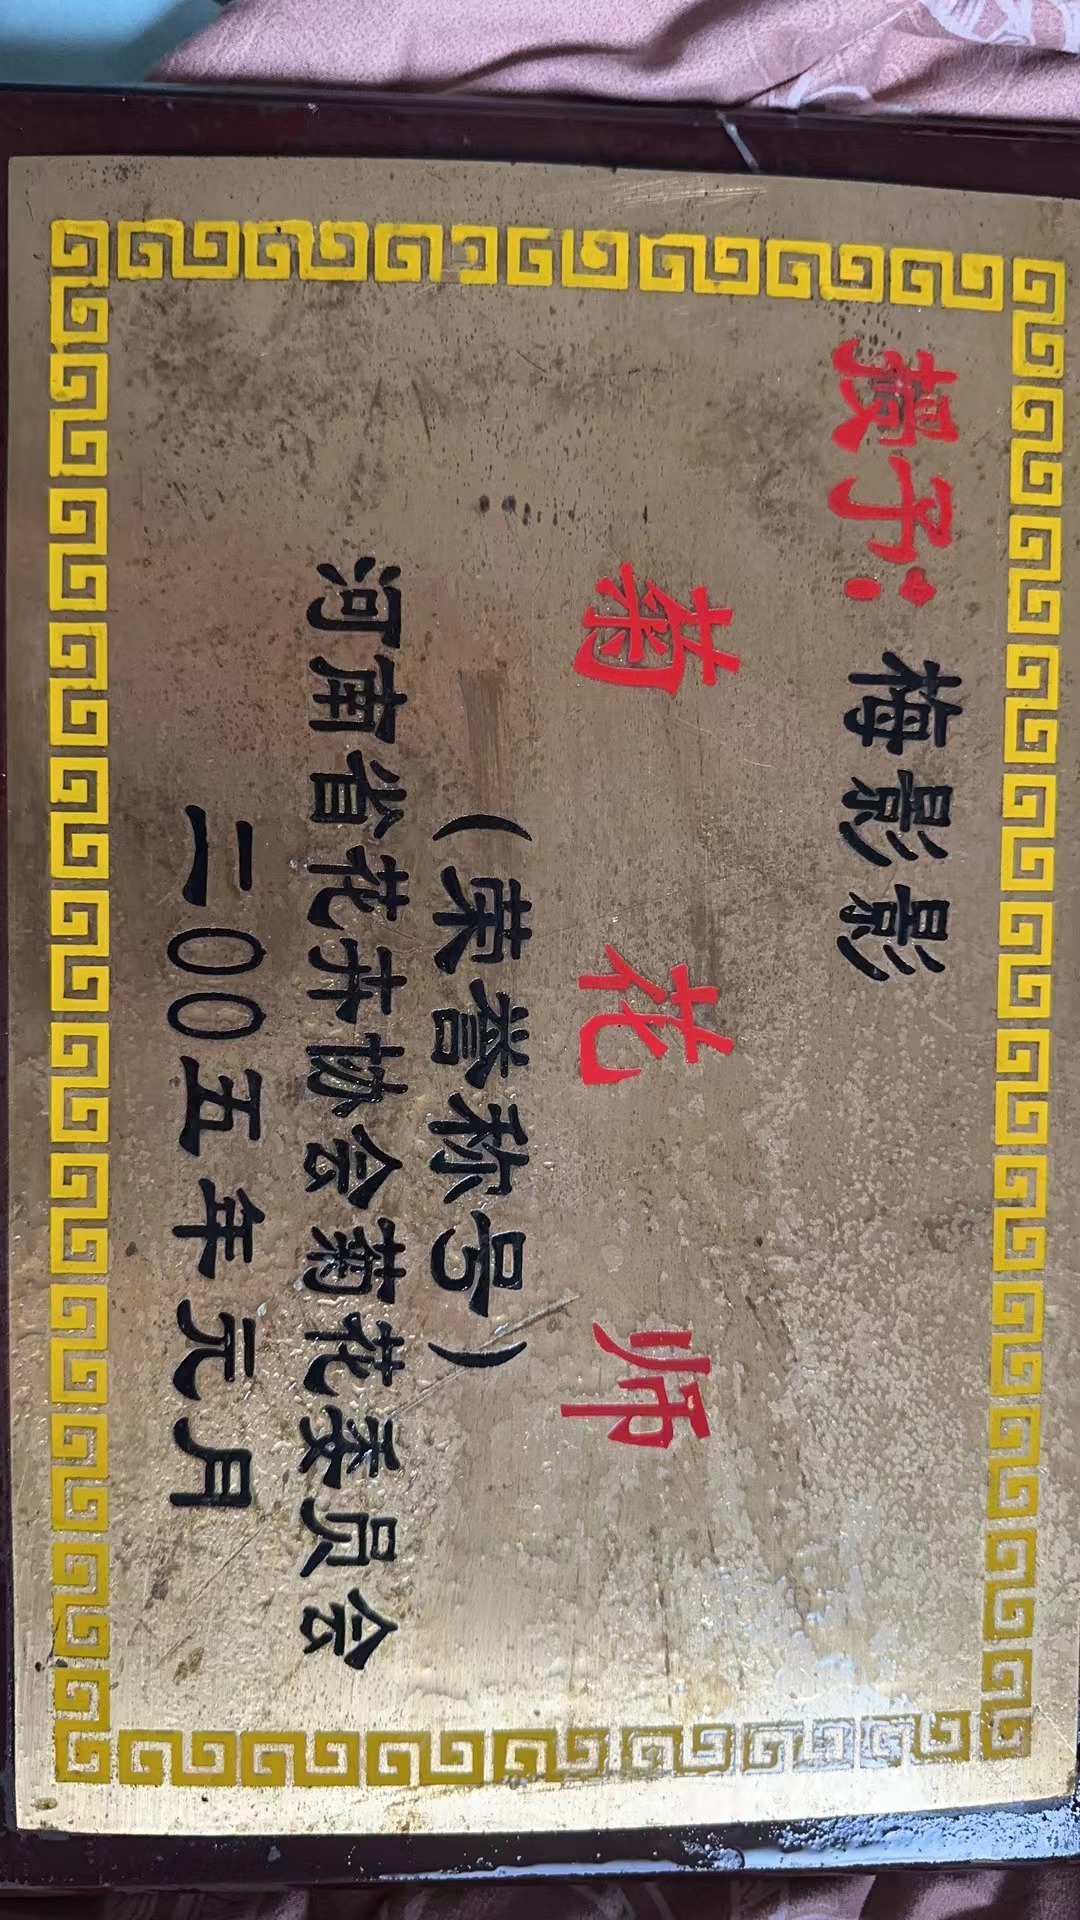 授予：梅影影
菊花师
（荣誉称号）
河南省花卉协会菊花委员会
二00五年元月